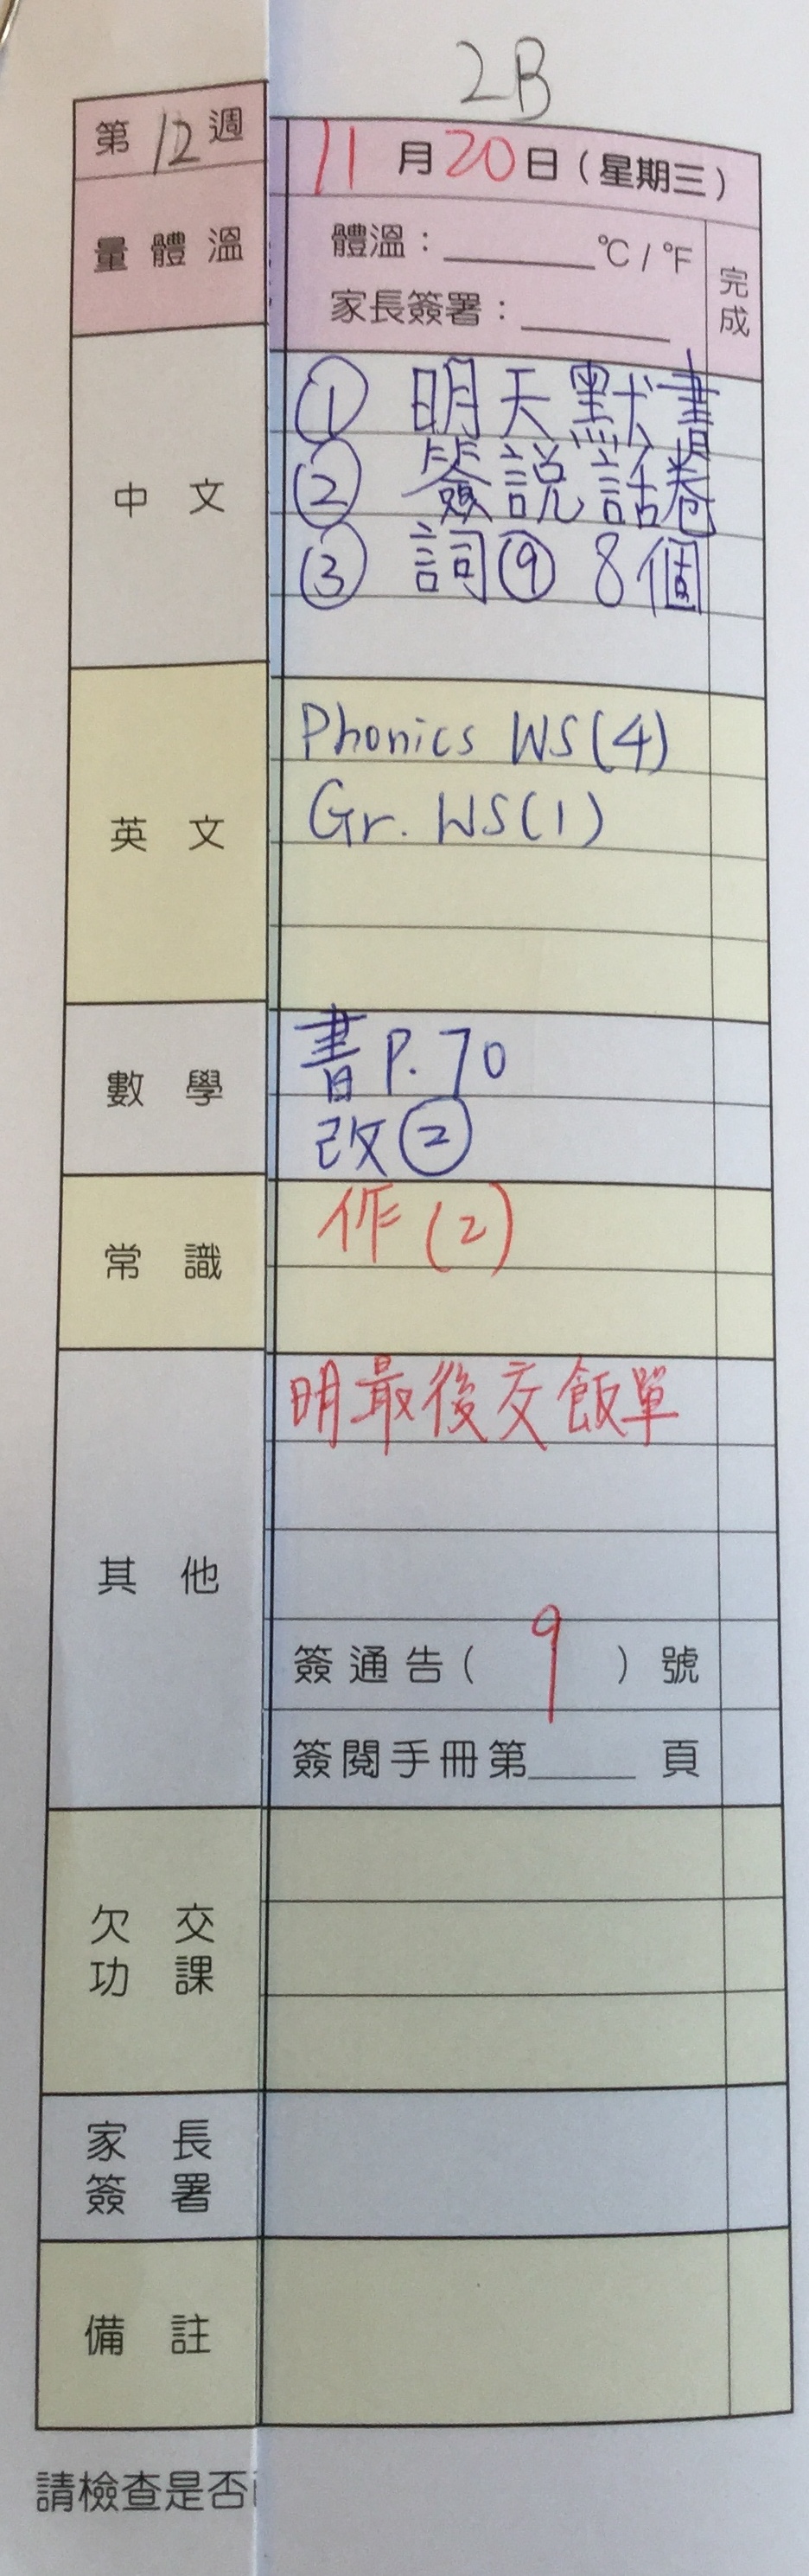 2B
第12週
11月20日（星期三）
量體溫
體溫：______°C / °F
家長簽署：______
完成
中文
① 明天默書
② 簽說話卷
③ 詞⑨ 8個
英文
Phonics WS(4)
Gr. WS(1)
數學
書P.70
改②
常識
作(2)
其他
明最後交飯單
簽通告（9）號
簽閱手冊第____頁
欠交
功課
家長
簽署
備註
請檢查是否